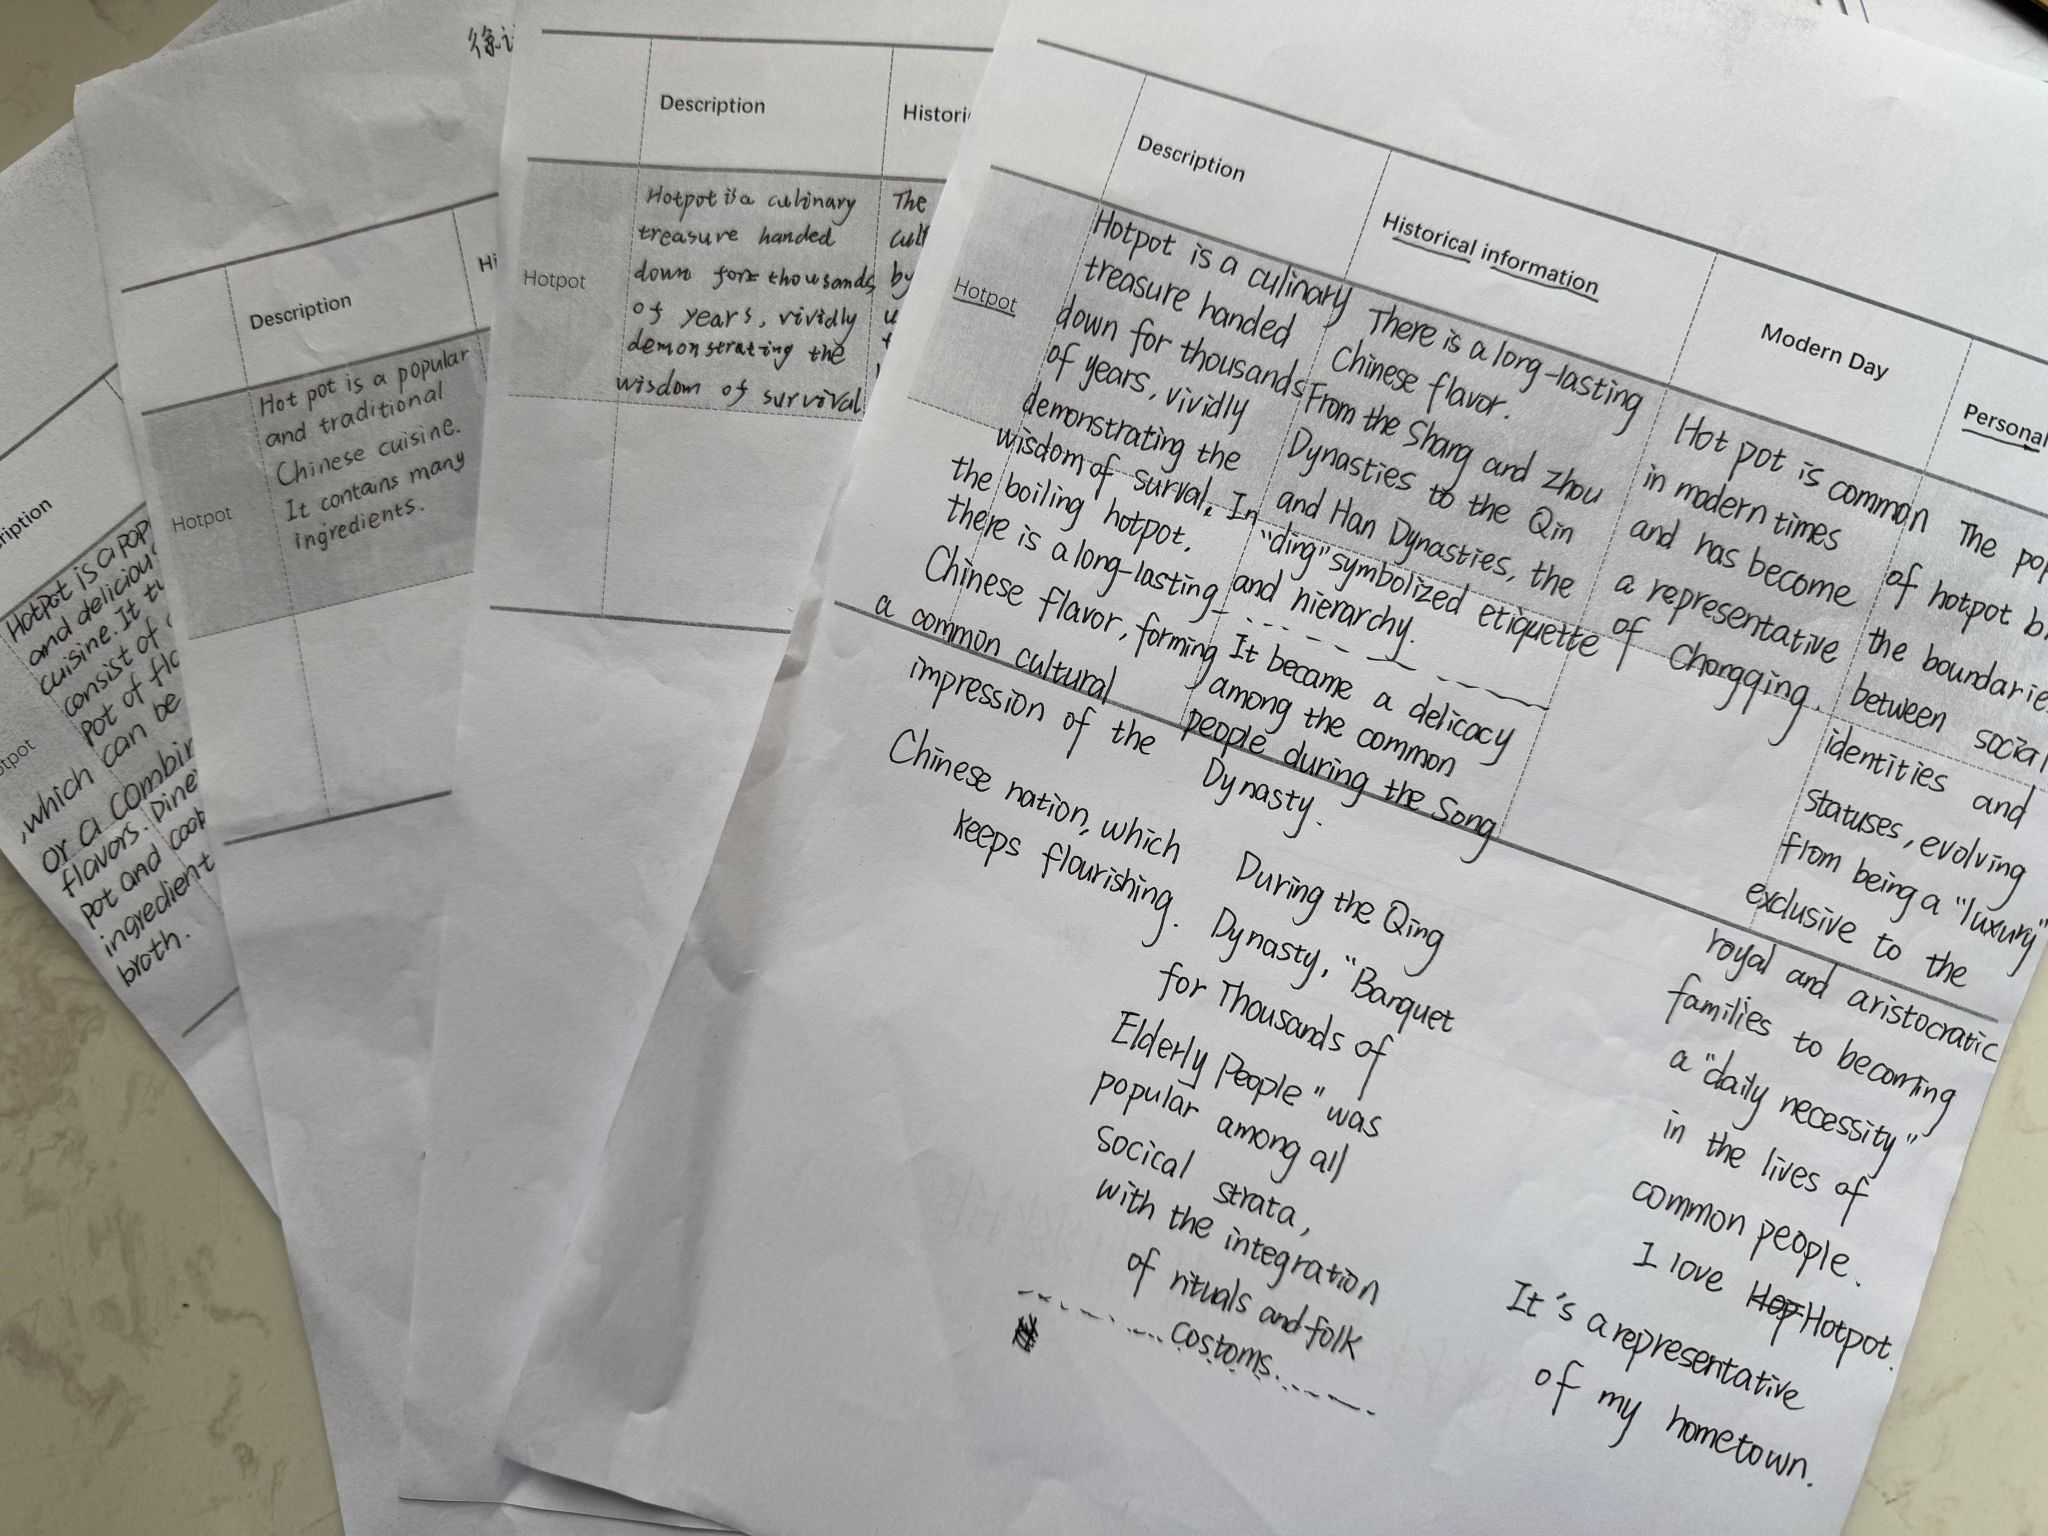 ription
Hotpot is a pop
and delicious
cuisine. It
consist of
pot of fla
otpot
, which can be
or a combin
flavors. Dine
pot and cook
ingredient
broth.
徐
Description
Hi
Hotpot
Hot pot is a popular
and traditional
Chinese cuisine.
It contains many
ingredients.
Description
Histori
Hotpot
Hotpot is a culinary
treasure handed
down for thousands
of years, vividly
demonstrating the
wisdom of survival
The
cult
by
Description
Historical information
Modern Day
Personal
Hotpot
Hotpot is a culinary
treasure handed
down for thousands
of years, vividly
demonstrating the
wisdom of surval. In
the boiling hotpot,
there is a long-lasting
Chinese flavor, forming
a common cultural
impression of the
Chinese nation, which
keeps flourishing.
There is a long-lasting
Chinese flavor.
From the Shang and Zhou
Dynasties to the Qin
and Han Dynasties, the
"ding" symbolized etiquette
and hierarchy.
It became a delicacy
among the common
people during the Song
Dynasty.
During the Qing
Dynasty, "Banquet
for Thousands of
Elderly People" was
popular among all
socical strata,
with the integration
of rituals and folk
costoms.
Hot pot is common
in modern times
and has become
a representative
of Chongqing.
The pop
of hotpot b
the boundaries
between social
identities and
statuses, evolving
from being a "luxury"
exclusive to the
royal and aristocratic
families to becoming
a "daily necessity"
in the lives of
common people.
I love Hotpot.
It's a representative
of my hometown.